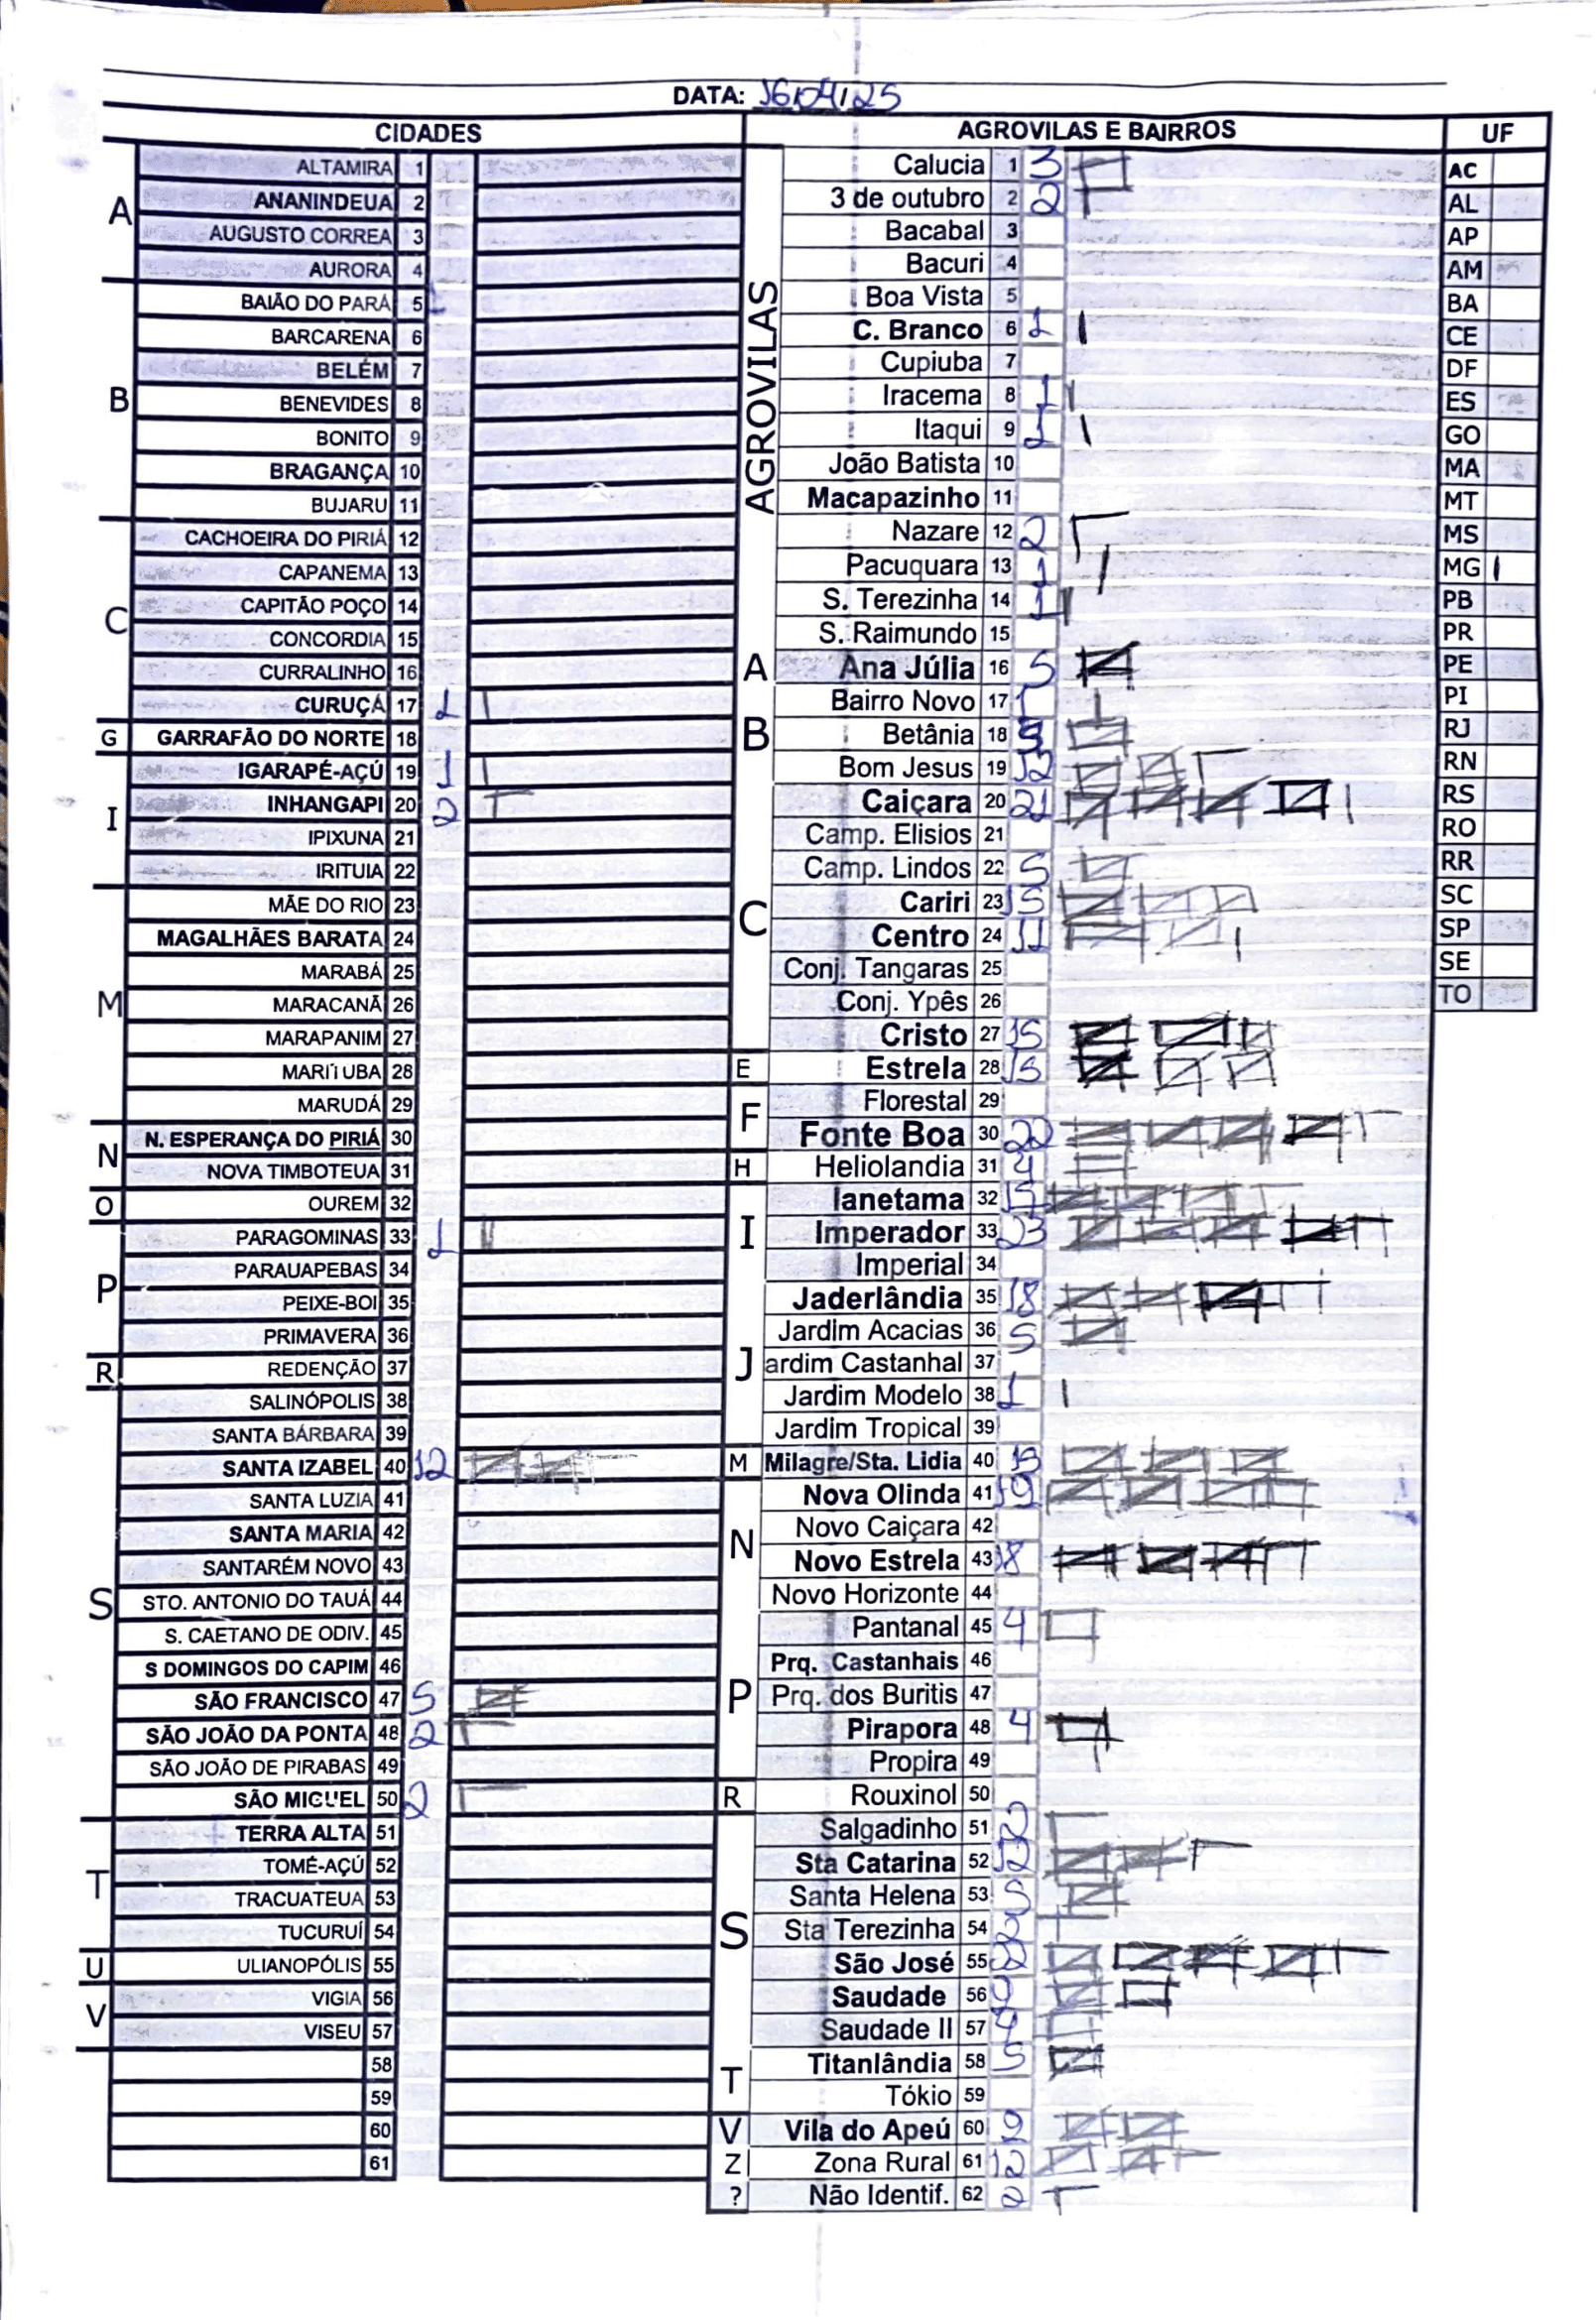 DATA: 16/04/25
CIDADES
A
ALTAMIRA 1
ANANINDEUA 2
AUGUSTO CORREA 3
AURORA 4
B
BAIÃO DO PARÁ 5
BARCARENA 6
BELÉM 7
BENEVIDES 8
BONITO 9
BRAGANÇA 10
BUJARU 11
C
CACHOEIRA DO PIRIÁ 12
CAPANEMA 13
CAPITÃO POÇO 14
CONCORDIA 15
CURRALINHO 16
CURUÇÁ 17 1
G
GARRAFÃO DO NORTE 18
I
IGARAPÉ-AÇÚ 19 1
INHANGAPI 20 2
IPIXUNA 21
IRITUIA 22
M
MÃE DO RIO 23
MAGALHÃES BARATA 24
MARABÁ 25
MARACANÃ 26
MARAPANIM 27
MARITUBA 28
MARUDÁ 29
N
N. ESPERANÇA DO PIRIÁ 30
NOVA TIMBOTEUA 31
O
OUREM 32
P
PARAGOMINAS 33 1
PARAUAPEBAS 34
PEIXE-BOI 35
PRIMAVERA 36
R
REDENÇÃO 37
S
SALINÓPOLIS 38
SANTA BÁRBARA 39
SANTA IZABEL 40 12
SANTA LUZIA 41
SANTA MARIA 42
SANTARÉM NOVO 43
STO. ANTONIO DO TAUÁ 44
S. CAETANO DE ODIV. 45
S DOMINGOS DO CAPIM 46
SÃO FRANCISCO 47 5
SÃO JOÃO DA PONTA 48 2
SÃO JOÃO DE PIRABAS 49
SÃO MIGUEL 50 2
T
TERRA ALTA 51
TOMÉ-AÇÚ 52
TRACUATEUA 53
TUCURUÍ 54
U
ULIANOPÓLIS 55
V
VIGIA 56
VISEU 57
58
59
60
61
AGROVILAS E BAIRROS
AGROVILAS
Calucia 1 3
3 de outubro 2 2
Bacabal 3
Bacuri 4
Boa Vista 5
C. Branco 6 1
Cupiuba 7
Iracema 8 1
Itaqui 9 1
João Batista 10
Macapazinho 11
Nazare 12 2
Pacuquara 13 1
S. Terezinha 14 1
S. Raimundo 15
A
Ana Júlia 16 5
B
Bairro Novo 17 1
Betânia 18
Bom Jesus 19 12
C
Caiçara 20 21
Camp. Elisios 21
Camp. Lindos 22 5
Cariri 23 15
Centro 24 11
Conj. Tangaras 25
Conj. Ypês 26
Cristo 27 15
E
Estrela 28 15
F
Florestal 29
Fonte Boa 30 22
H
Heliolandia 31 4
I
Ianetama 32
Imperador 33 23
Imperial 34
J
Jaderlândia 35 18
Jardim Acacias 36 5
Jardim Castanhal 37
Jardim Modelo 38 1
Jardim Tropical 39
M
Milagre/Sta. Lidia 40 15
N
Nova Olinda 41 19
Novo Caiçara 42
Novo Estrela 43 18
Novo Horizonte 44
P
Pantanal 45 4
Prq. Castanhais 46
Prq. dos Buritis 47
Pirapora 48 4
Propira 49
R
Rouxinol 50
S
Salgadinho 51 2
Sta Catarina 52 12
Santa Helena 53 5
Sta Terezinha 54
São José 55 22
Saudade 56
Saudade II 57 4
T
Titanlândia 58 5
Tókio 59
V
Vila do Apeú 60 9
Z
Zona Rural 61 12
?
Não Identif. 62 2
UF
AC
AL
AP
AM
BA
CE
DF
ES
GO
MA
MT
MS
MG
PB
PR
PE
PI
RJ
RN
RS
RO
RR
SC
SP
SE
TO